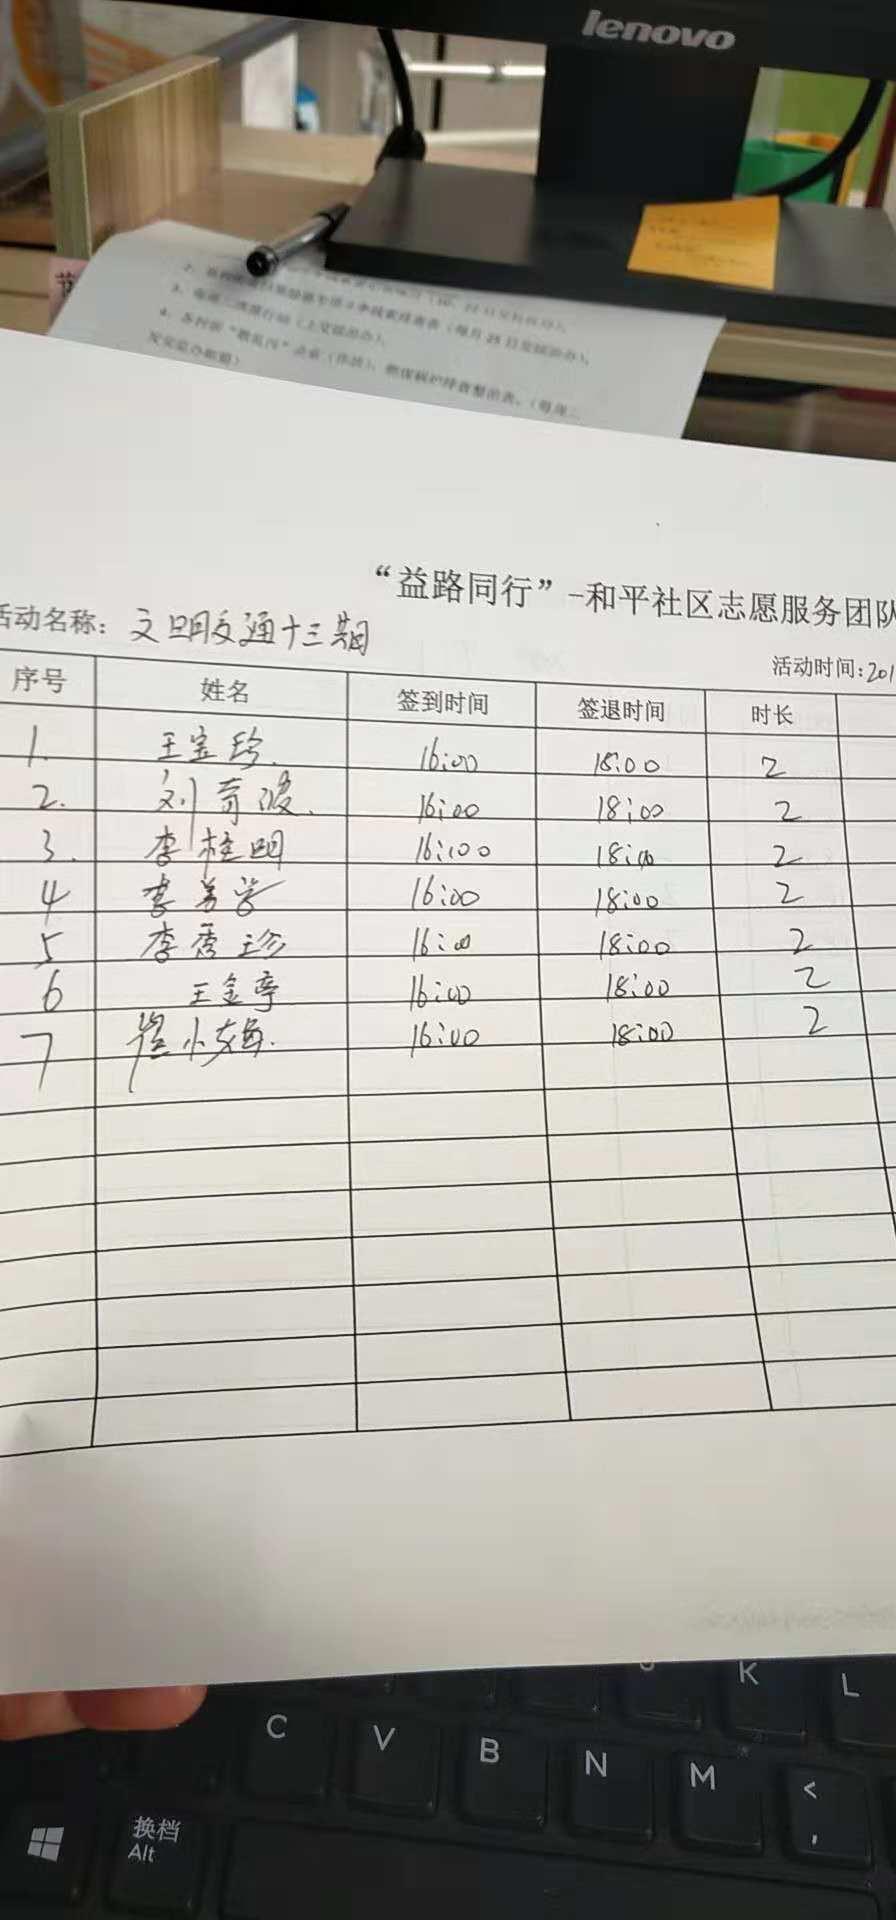 lenovo
“益路同行”-和平社区志愿服务团队
活动名称: 文明交通十三期
活动时间:201
序号 姓名 签到时间 签退时间 时长
1. 王宝珍 16:00 18:00 2
2. 刘育波 16:00 18:00 2
3. 李桂明 16:00 18:00 2
4 李 16:00 18:00 2
5 李秀珍 16:00 18:00 2
6 王金亭 16:00 18:00 2
7 崔小梅 16:00 18:00 2
K L
C V B N M <
,
换档
Alt